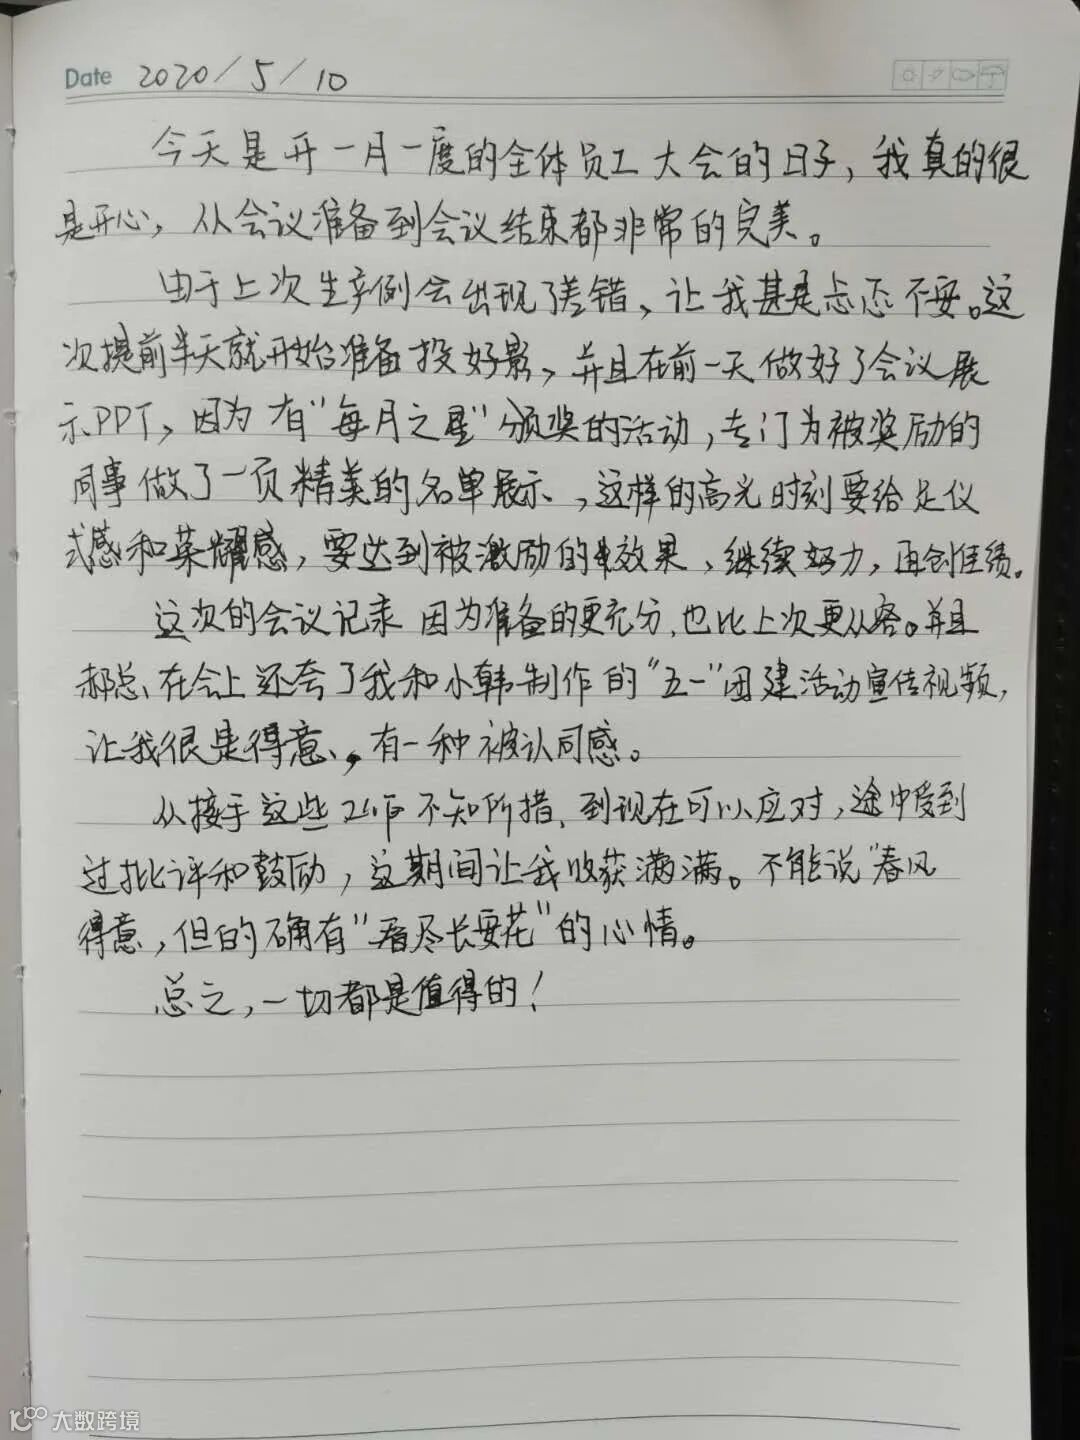 Date 2020/5/10
今天是开一月一度的全体员工大会的日子，我真的很
是开心，从会议准备到会议结束都非常的完美。
由于上次生产例会出现了差错，让我甚是忐忑不安。这
次提前半天就开始准备投好影，并且在前一天做好了会议展
示PPT，因为有“每月之星”颁奖的活动，专门为被奖励的
同事做了一页精美的名单展示，这样的高光时刻要给足仪
式感和荣耀感，要达到被激励的效果，继续努力，再创佳绩。
这次的会议记录因为准备的更充分，也比上次更从容。并且
郝总在会上还夸了我和小韩制作的“五一”团建活动宣传视频，
让我很是得意，有一种被认同感。
从接手这些工作不知所措，到现在可以应对，途中受到
过批评和鼓励，这期间让我收获满满。不能说“春风
得意，但的确有“看尽长安花”的心情。
总之，一切都是值得的！
大数跨境